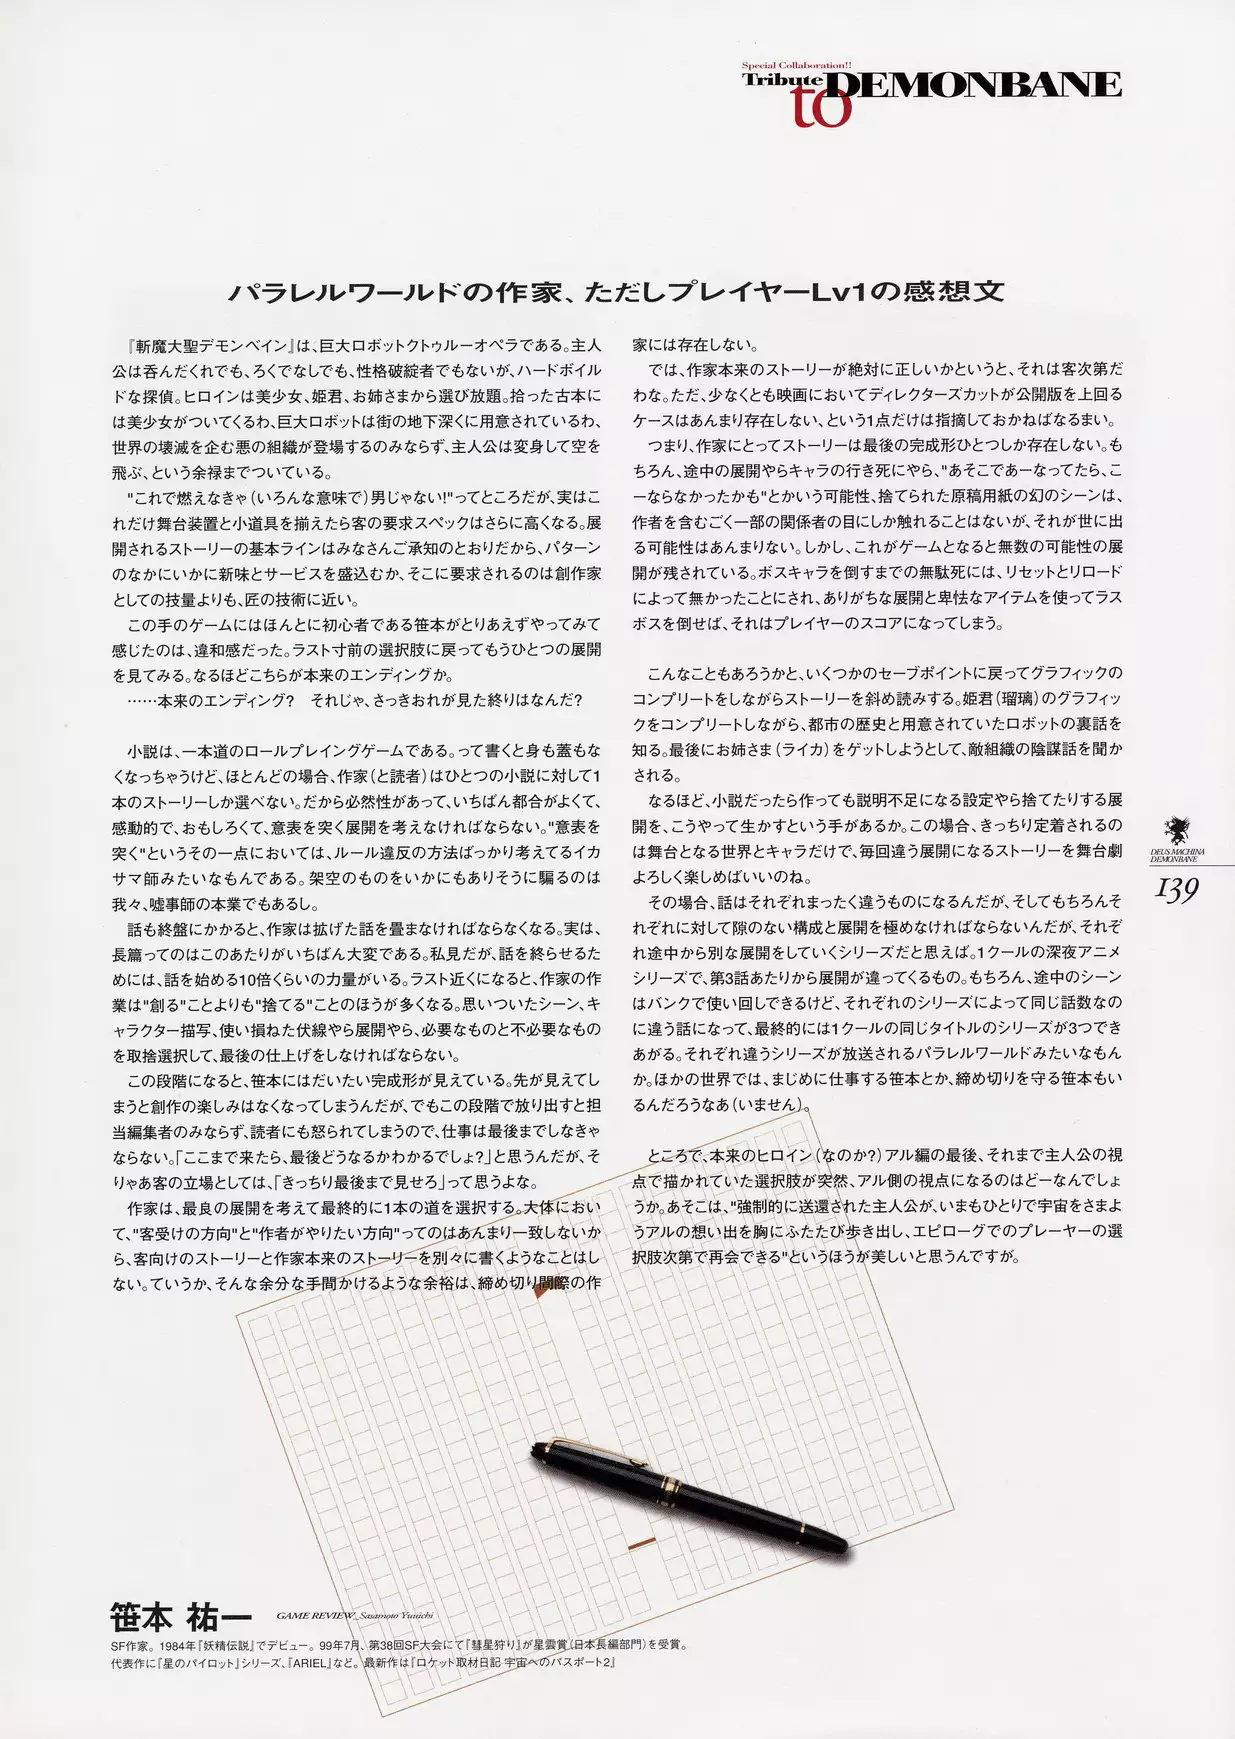 Special Collaboration!!
Tribute
to DEMONBANE
パラレルワールドの作家、ただしプレイヤーLv1の感想文
『斬魔大聖デモンベイン』は、巨大ロボットクトゥルーオペラである。主人
公は呑んだくれでも、ろくでなしでも、性格破綻者でもないが、ハードボイル
ドな探偵。ヒロインは美少女、姫君、お姉さまから選び放題。拾った古本に
は美少女がついてくるわ、巨大ロボットは街の地下深くに用意されているわ、
世界の壊滅を企む悪の組織が登場するのみならず、主人公は変身して空を
飛ぶ、という余禄までついている。
"これで燃えなきゃ（いろんな意味で）男じゃない!"ってところだが、実はこ
れだけ舞台装置と小道具を揃えたら客の要求スペックはさらに高くなる。展
開されるストーリーの基本ラインはみなさんご承知のとおりだから、パターン
のなかにいかに新味とサービスを盛込むか、そこに要求されるのは創作家
としての技量よりも、匠の技術に近い。
この手のゲームにはほんとに初心者である笹本がとりあえずやってみて
感じたのは、違和感だった。ラスト寸前の選択肢に戻ってもうひとつの展開
を見てみる。なるほどこちらが本来のエンディングか。
……本来のエンディング？　それじゃ、さっきおれが見た終りはなんだ？
小説は、一本道のロールプレイングゲームである。って書くと身も蓋もな
くなっちゃうけど、ほとんどの場合、作家（と読者）はひとつの小説に対して1
本のストーリーしか選べない。だから必然性があって、いちばん都合がよくて、
感動的で、おもしろくて、意表を突く展開を考えなければならない。"意表を
突く"というその一点においては、ルール違反の方法ばっかり考えてるイカ
サマ師みたいなもんである。架空のものをいかにもありそうに騙るのは
我々、嘘事師の本業でもあるし。
話も終盤にかかると、作家は拡げた話を畳まなければならなくなる。実は、
長篇ってのはこのあたりがいちばん大変である。私見だが、話を終らせるた
めには、話を始める10倍くらいの力量がいる。ラスト近くになると、作家の作
業は"創る"ことよりも"捨てる"ことのほうが多くなる。思いついたシーン、キ
ャラクター描写、使い損ねた伏線やら展開やら、必要なものと不必要なもの
を取捨選択して、最後の仕上げをしなければならない。
この段階になると、笹本にはだいたい完成形が見えている。先が見えてし
まうと創作の楽しみはなくなってしまうんだが、でもこの段階で放り出すと担
当編集者のみならず、読者にも怒られてしまうので、仕事は最後までしなきゃ
ならない。「ここまで来たら、最後どうなるかわかるでしょ？」と思うんだが、そ
りゃあ客の立場としては、「きっちり最後まで見せろ」って思うよな。
作家は、最良の展開を考えて最終的に1本の道を選択する。大体におい
て、"客受けの方向"と"作者がやりたい方向"ってのはあんまり一致しないか
ら、客向けのストーリーと作家本来のストーリーを別々に書くようなことはし
ない。ていうか、そんな余分な手間かけるような余裕は、締め切り間際の作
家には存在しない。
では、作家本来のストーリーが絶対に正しいかというと、それは客次第だ
わな。ただ、少なくとも映画においてディレクターズカットが公開版を上回る
ケースはあんまり存在しない、という1点だけは指摘しておかねばなるまい。
つまり、作家にとってストーリーは最後の完成形ひとつしか存在しない。も
ちろん、途中の展開やらキャラの行き死にやら、"あそこであーなってたら、こ
ーならなかったかも"とかいう可能性、捨てられた原稿用紙の幻のシーンは、
作者を含むごく一部の関係者の目にしか触れることはないが、それが世に出
る可能性はあんまりない。しかし、これがゲームとなると無数の可能性の展
開が残されている。ボスキャラを倒すまでの無駄死には、リセットとリロード
によって無かったことにされ、ありがちな展開と卑怯なアイテムを使ってラス
ボスを倒せば、それはプレイヤーのスコアになってしまう。
こんなこともあろうかと、いくつかのセーブポイントに戻ってグラフィックの
コンプリートをしながらストーリーを斜め読みする。姫君（瑠璃）のグラフィッ
クをコンプリートしながら、都市の歴史と用意されていたロボットの裏話を
知る。最後にお姉さま（ライカ）をゲットしようとして、敵組織の陰謀話を聞か
される。
なるほど、小説だったら作っても説明不足になる設定やら捨てたりする展
開を、こうやって生かすという手があるか。この場合、きっちり定着されるの
は舞台となる世界とキャラだけで、毎回違う展開になるストーリーを舞台劇
よろしく楽しめばいいのね。
その場合、話はそれぞれまったく違うものになるんだが、そしてもちろんそ
れぞれに対して隙のない構成と展開を極めなければならないんだが、それぞ
れ途中から別な展開をしていくシリーズだと思えば。1クールの深夜アニメ
シリーズで、第3話あたりから展開が違ってくるもの。もちろん、途中のシーン
はバンクで使い回しできるけど、それぞれのシリーズによって同じ話数なの
に違う話になって、最終的には1クールの同じタイトルのシリーズが3つでき
あがる。それぞれ違うシリーズが放送されるパラレルワールドみたいなもん
か。ほかの世界では、まじめに仕事する笹本とか、締め切りを守る笹本もい
るんだろうなあ（いません）。
ところで、本来のヒロイン（なのか？）アル編の最後、それまで主人公の視
点で描かれていた選択肢が突然、アル側の視点になるのはどーなんでしょ
うか。あそこは、"強制的に送還された主人公が、いまもひとりで宇宙をさまよ
うアルの想い出を胸にふたたび歩き出し、エピローグでのプレーヤーの選
択肢次第で再会できる"というほうが美しいと思うんですが。
DEUS MACHINA
DEMONBANE
139
笹本 祐一 GAME REVIEW_Sasamoto Yuuichi
SF作家。1984年『妖精伝説』でデビュー。99年7月、第38回SF大会にて『彗星狩り』が星雲賞（日本長編部門）を受賞。
代表作に『星のパイロット』シリーズ、『ARIEL』など。最新作は『ロケット取材日記 宇宙へのパスポート2』